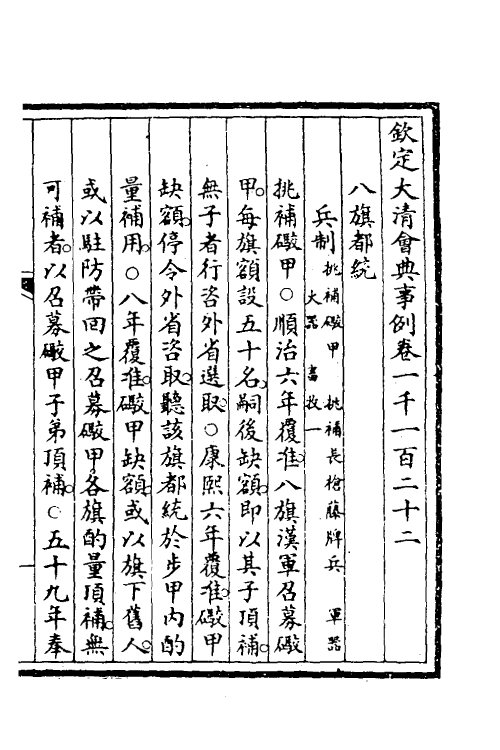 欽定大清會典事例卷一千一百二十二
八旗都統
兵制 挑補礮甲 挑補長槍藤牌兵 軍器 火器 畜牧一
挑補礮甲○順治六年覆准八旗漢軍召募礮
甲每旗額設五十名嗣後缺額即以其子頂補
無子者行咨外省選取○康熙六年覆准礮甲
缺額停令外省咨取聽該旗都統於步甲內酌
量補用○八年覆准礮甲缺額或以旗下舊人
或以駐防帶回之召募礮甲各旗酌量頂補無
可補者以召募礮甲子弟頂補○五十九年奉